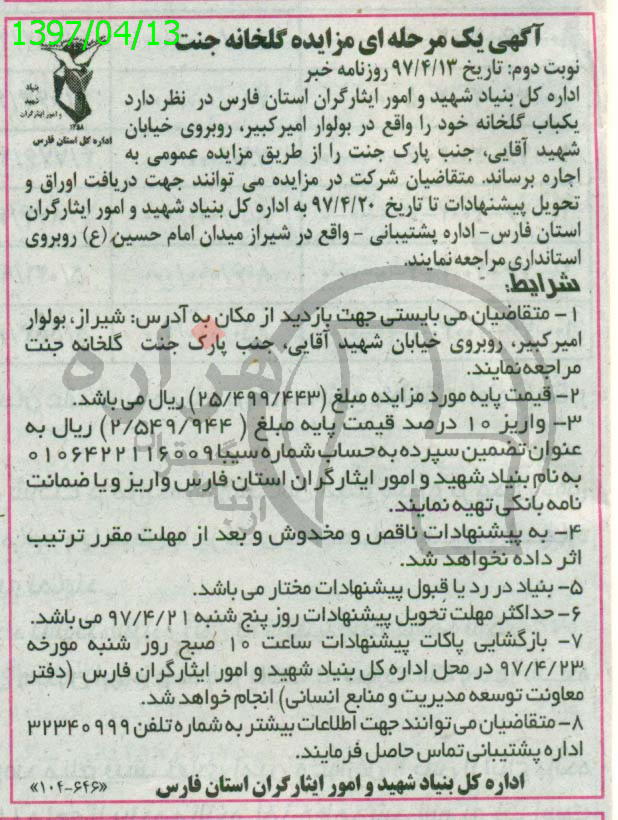 1397/04/13
آگهی یک مرحله ای مزایده گلخانه جنت
بنیاد
شهید
و امور ایثارگران
۱۳۵۸
اداره کل استان فارس
نوبت دوم: تاریخ ۹۷/۴/۱۳ روزنامه خبر
اداره کل بنیاد شهید و امور ایثارگران استان فارس در نظر دارد
یکباب گلخانه خود را واقع در بولوار امیرکبیر، روبروی خیابان
شهید آقایی، جنب پارک جنت را از طریق مزایده عمومی به
اجاره برساند. متقاضیان شرکت در مزایده می توانند جهت دریافت اوراق و
تحویل پیشنهادات تا تاریخ ۹۷/۴/۲۰ به اداره کل بنیاد شهید و امور ایثارگران
استان فارس- اداره پشتیبانی - واقع در شیراز میدان امام حسین (ع) روبروی
استانداری مراجعه نمایند.
شرایط:
۱- متقاضیان می بایستی جهت بازدید از مکان به آدرس: شیراز، بولوار
امیرکبیر، روبروی خیابان شهید آقایی، جنب پارک جنت گلخانه جنت
مراجعه نمایند.
۲- قیمت پایه مورد مزایده مبلغ (۲۵/۴۹۹/۴۴۳) ریال می باشد.
۳- واریز ۱۰ درصد قیمت پایه مبلغ ( ۲/۵۴۹/۹۴۴) ریال به
عنوان تضمین سپرده به حساب شماره سیبا ۰۱۰۶۴۲۲۱۱۶۰۰۹
به نام بنیاد شهید و امور ایثارگران استان فارس واریز و یا ضمانت
نامه بانکی تهیه نمایند.
۴- به پیشنهادات ناقص و مخدوش و بعد از مهلت مقرر ترتیب
اثر داده نخواهد شد.
۵- بنیاد در رد یا قبول پیشنهادات مختار می باشد.
۶- حداکثر مهلت تحویل پیشنهادات روز پنج شنبه ۹۷/۴/۲۱ می باشد.
۷- بازگشایی پاکات پیشنهادات ساعت ۱۰ صبح روز شنبه مورخه
۹۷/۴/۲۳ در محل اداره کل بنیاد شهید و امور ایثارگران فارس (دفتر
معاونت توسعه مدیریت و منابع انسانی) انجام خواهد شد.
۸- متقاضیان می توانند جهت اطلاعات بیشتر به شماره تلفن ۳۲۳۴۰۹۹۹
اداره پشتیبانی تماس حاصل فرمایند.
اداره کل بنیاد شهید و امور ایثارگران استان فارس «۱۰۴-۶۴۶»
هزاره